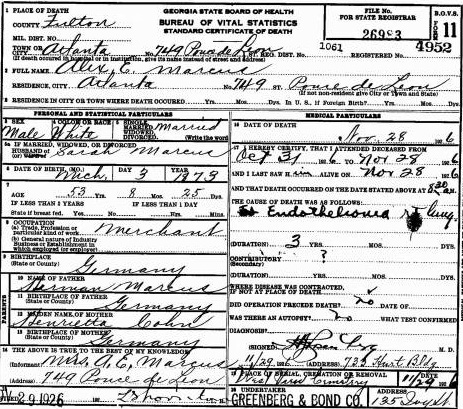 1 PLACE OF DEATH
COUNTY Fulton
MIL. DIST.
TOWN or CITY Atlanta
749 Ponce de Leon
(If death occurred in hospital or in institution, give its name instead of street and address)
GEORGIA STATE BOARD OF HEALTH
BUREAU OF VITAL STATISTICS
STANDARD CERTIFICATE OF DEATH
FILE No.
FOR STATE REGISTRAR
26983
B.O.V.S.
11
1061
4952
2 FULL NAME Alex C. Marcus
RESIDENCE, CITY Atlanta No. 749 ST. Ponce de Leon
(If non-resident give City or Town and State)
RESIDENCE IN CITY OR TOWN WHERE DEATH OCCURRED Yrs. Mos. Dys. In U. S., if Foreign Birth? Yrs. Mos. Dys.
PERSONAL AND STATISTICAL PARTICULARS
3 SEX Male
4 COLOR OR RACE White
SINGLE, MARRIED, WIDOWED, DIVORCED Married
5a IF MARRIED, WIDOWED OR DIVORCED
HUSBAND OF Sarah Marcus
6 DATE OF BIRTH (MO.) Mch. DAY 3 YEAR 1873
7 AGE 53 8 25
IF LESS THAN 1 YEAR IF LESS THAN 1 DAY
State if breast fed. Yrs. Mos. Dys. Hrs. Min.
8 OCCUPATION
(a) Trade, Profession or particular kind of work Merchant
(b) General nature of Industry
Business or Establishment in which employed or employer
9 BIRTHPLACE
(State or County) Germany
10 NAME OF FATHER Herman Marcus
11 BIRTHPLACE OF FATHER
(State or County) Germany
12 MAIDEN NAME OF MOTHER Henrietta Cohn
13 BIRTHPLACE OF MOTHER
(State or County) Germany
PARENTS
14 THE ABOVE IS TRUE TO THE BEST OF MY KNOWLEDGE
(Informant) Mrs. A. C. Marcus
749 Ponce de Leon
29 1926
MEDICAL PARTICULARS
16 DATE OF DEATH
Nov. 28 1926
17 I HEREBY CERTIFY, THAT I ATTENDED DECEASED FROM
Oct 31 1926 TO Nov 28 1926
AND I LAST SAW H im ALIVE ON Nov 28 1926
AND THAT DEATH OCCURRED ON THE DATE STATED ABOVE AT 8 M.
THE CAUSE OF DEATH WAS AS FOLLOWS:
Endothelioma rt lung
(DURATION) 3 YRS. MOS. DYS.
CONTRIBUTORY ?
(Secondary)
(DURATION) YRS. MOS. DYS.
WHERE DISEASE WAS CONTRACTED,
IF NOT AT PLACE OF DEATH?
DID OPERATION PRECEDE DEATH? no DATE OF
WAS THERE AN AUTOPSY? no WHAT TEST CONFIRMED
DIAGNOSIS?
(SIGNED) M. D.
11/29 1926 723 Hurt Bldg
PLACE OF BURIAL, CREMATION OR REMOVAL
11/29 26
UNDERTAKER
GREENBERG & BOND CO.